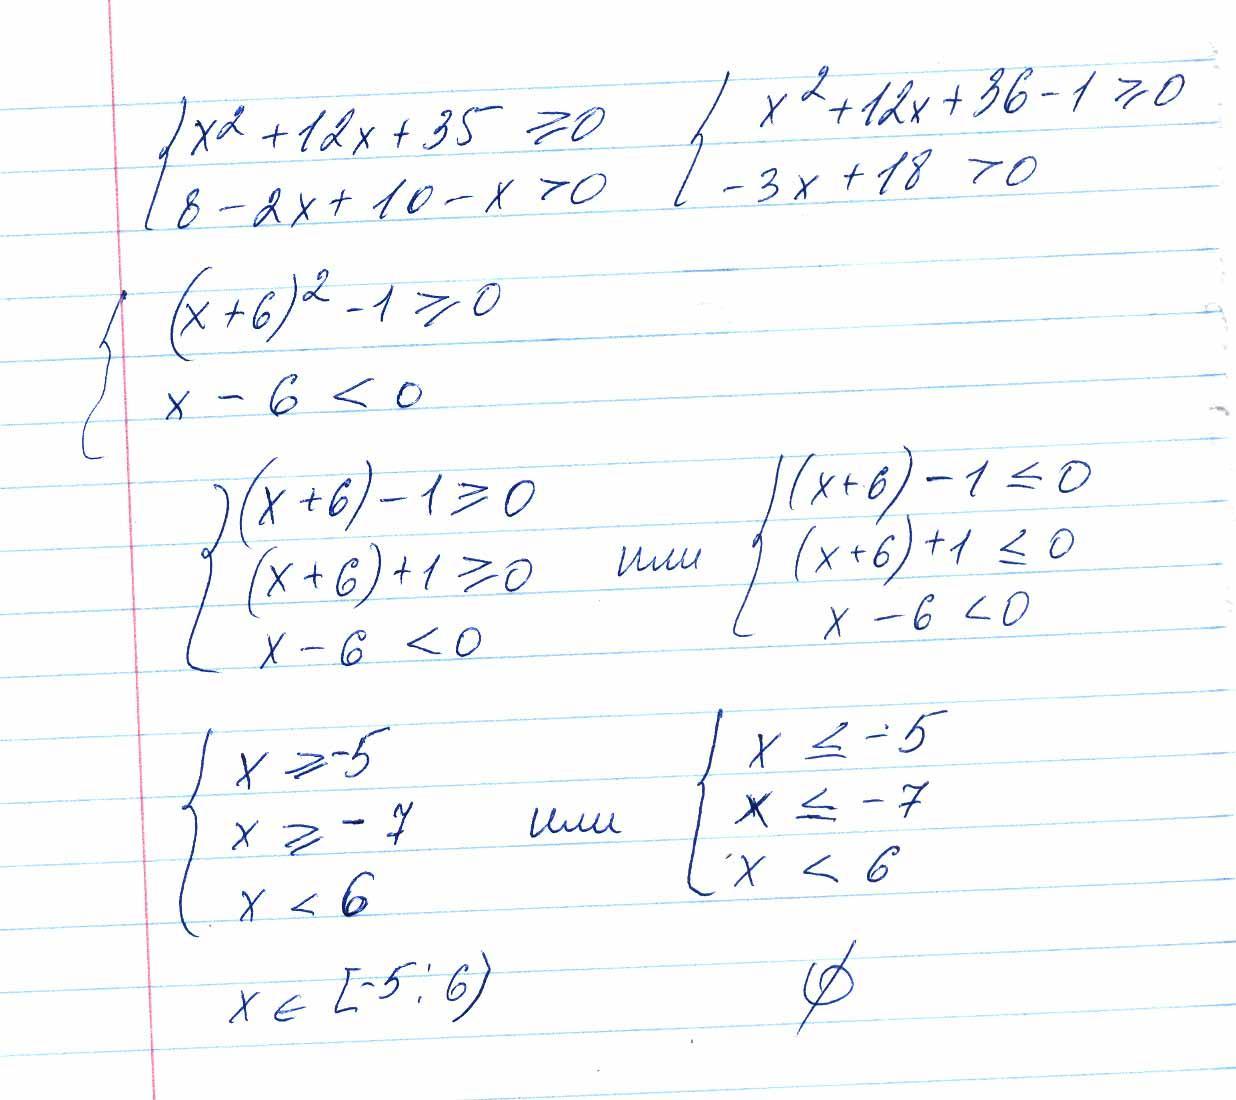 x² + 12x + 35 ⩾ 0
8 - 2x + 10 - x > 0
x² + 12x + 36 - 1 ⩾ 0
-3x + 18 > 0
(x + 6)² - 1 ⩾ 0
x - 6 < 0
(x + 6) - 1 ⩾ 0
(x + 6) + 1 ⩾ 0
x - 6 < 0
или
(x + 6) - 1 ≤ 0
(x + 6) + 1 ≤ 0
x - 6 < 0
x ⩾ -5
x ⩾ -7
x < 6
или
x ≤ -5
x ≤ -7
x < 6
x ∈ [-5; 6)
∅